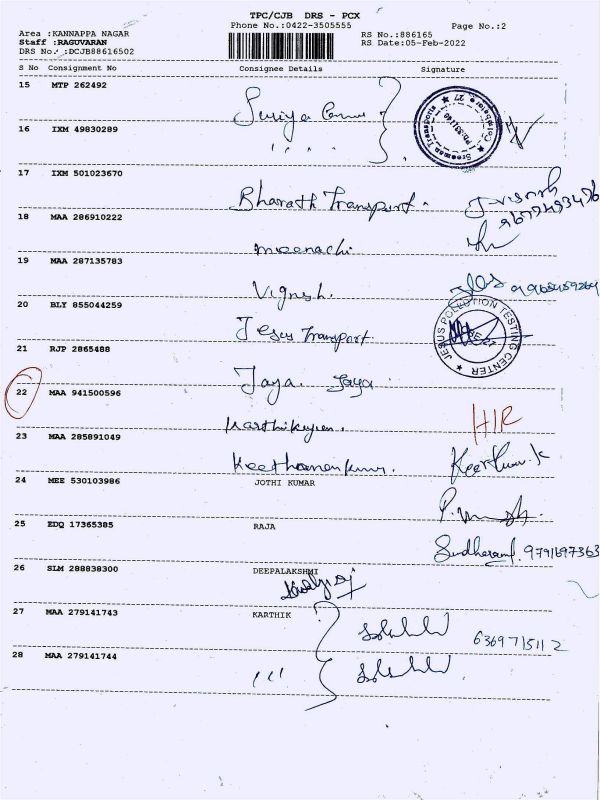 TPC/CJB DRS - PCX
Area :KANNAPPA NAGAR Phone No.:0422-3505555 Page No.:2
Staff :RAGUVARAN RS No.:886165
DRS No. :DCJB88616502 RS Date:05-Feb-2022
S No Consignment No Consignee Details Signature
15 MTP 262492
Suriya
16 IXM 49830289
17 IXM 501023670
Bharath Transport.
18 MAA 286910222
meenachi
19 MAA 287135783
Vignesh.
20 BLY 855044259
Jesus Transport
JESUS POLLUTION TESTING CENTER
21 RJP 2865488
Jaya Jaya
22 MAA 941500596
Karthikeyan.
23 MAA 285891049
24 MEE 530103986 JOTHI KUMAR
25 EDQ 17365385 RAJA
9791697363
26 SLM 288838300 DEEPALAKSHMI
27 MAA 279141743 KARTHIK
6369715112
28 MAA 279141744